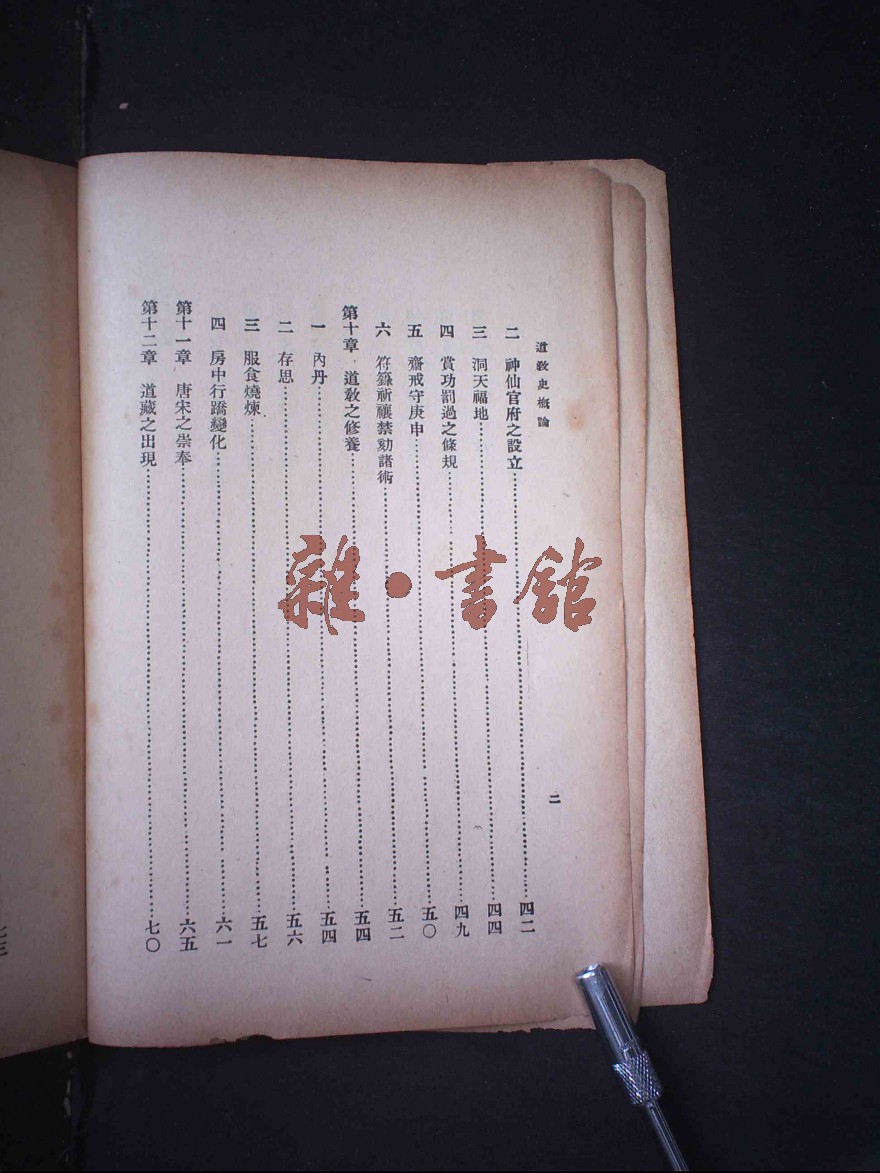 道教史概論
二
二 神仙官府之設立 四二
三 洞天福地 四四
四 賞功罰過之條規 四九
五 齋戒守庚申 五〇
六 符籙祈禳禁劾諸術 五二
第十章 道教之修養 五四
一 內丹 五四
二 存思 五六
三 服食燒煉 五七
四 房中行蹻變化 六一
第十一章 唐宋之崇奉 六五
第十二章 道藏之出現 七〇
雜·書館